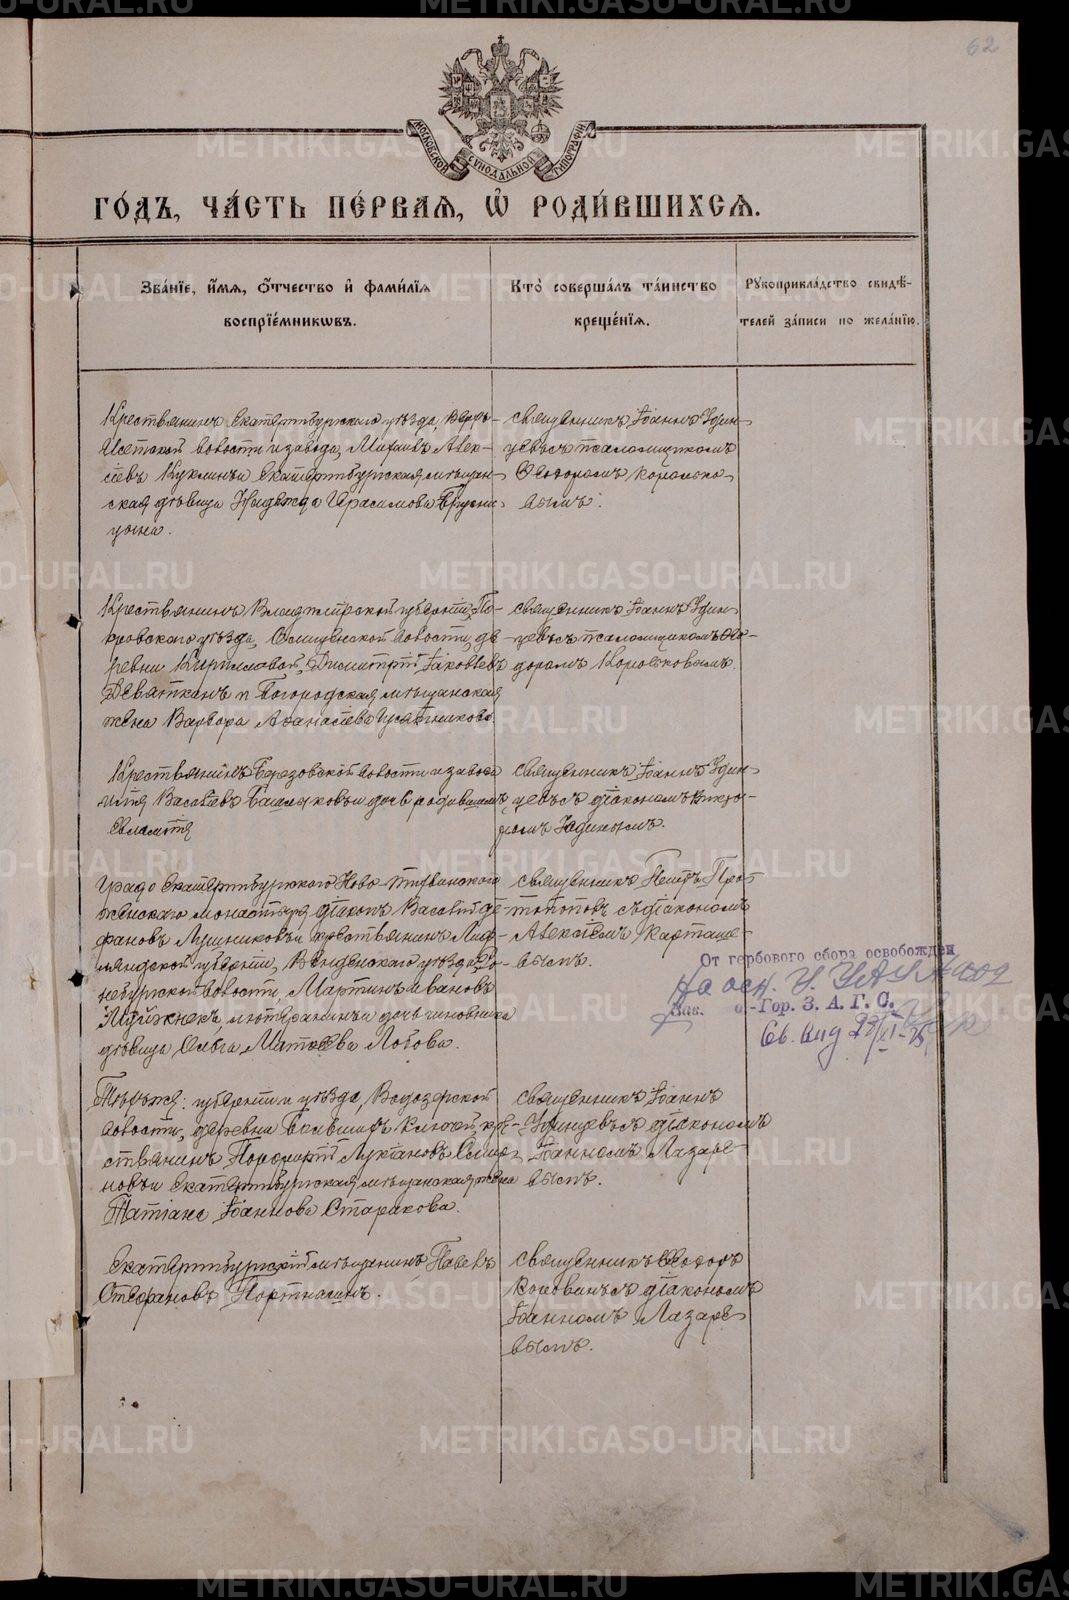 62
МОСКОВСКОЙ СУНОДАЛЬНОЙ ТИПОГРАФІИ
ГО́ДЪ, ЧА́СТЬ ПЕ́РВАЯ, Ѡ҆ РОДИ́ВШИХСЯ.
Зва́нїе, и҆́мя, ѻ҆́тчество и҆ фами́лїя
воспрїе́мникѡвъ.
Кто̀ соверша́лъ та́инство
креще́нїя.
Рꙋкоприкла́дство свидѣ́-
телей за́писи по жела́нїю.
Крестьянинъ Екатеринбургскаго уѣзда, Верхъ-
Исетской волости и завода, Михаилъ Алек-
сѣевъ и Екатеринбургская мѣщан-
ская дѣвица Надежда Герасимова Брусни-
цына.
Священникъ Іоаннъ Удин-
цевъ съ псаломщикомъ
Ѳеодоромъ Королько-
вымъ.
Крестьянинъ Владимірской губерніи, По-
кровскаго уѣзда, волости, де-
ревни Кирилловой, Димитрій Іаковлевъ
Девяткинъ и Богородская мѣщанская
жена Варвара Аѳанасіева
Священникъ Іоаннъ Удин-
цевъ съ псаломщикомъ Ѳео-
доромъ Корольковымъ.
Крестьянинъ Березовской волости и завода
Илія Василіевъ и дочь родившаго
Евлампія
Священникъ Іоаннъ Удин-
цевъ съ діакономъ Викто-
ромъ
Градо Екатеринбургскаго Ново-Тихвинскаго
женскаго монастыря діаконъ Василій Сте-
фановъ Лушниковъ и крестьянинъ Лиф-
ляндской губерніи, Венденскаго уѣзда, Ро-
небургской волости, Мартинъ Ивановъ
лютеранинъ и дочь чиновника
дѣвица Ольга Матѳѣева Лобова.
Священникъ Петръ Про-
топоповъ съ діакономъ
Алексіемъ Карташе-
вымъ.
От гербового сбора освобожден
На осн.
Зав. -Гор. З. А. Г. С.
губерніи и уѣзда, Водозерской
волости, деревни Ключей, кре-
стьянинъ Порфирій Лукіановъ Смир-
новъ и Екатеринбургская мѣщанская жена
Татіана Іоаннова Старкова.
Священникъ Іоаннъ
Удинцевъ съ діакономъ
Іоанномъ Лазаре-
вымъ.
Екатеринбургскій мѣщанинъ Павелъ
Стефановъ Портнягинъ.
Священникъ Ѳеодоръ
съ діакономъ
Іоанномъ Лазаре-
вымъ.
METRIKI.GASO-URAL.RU